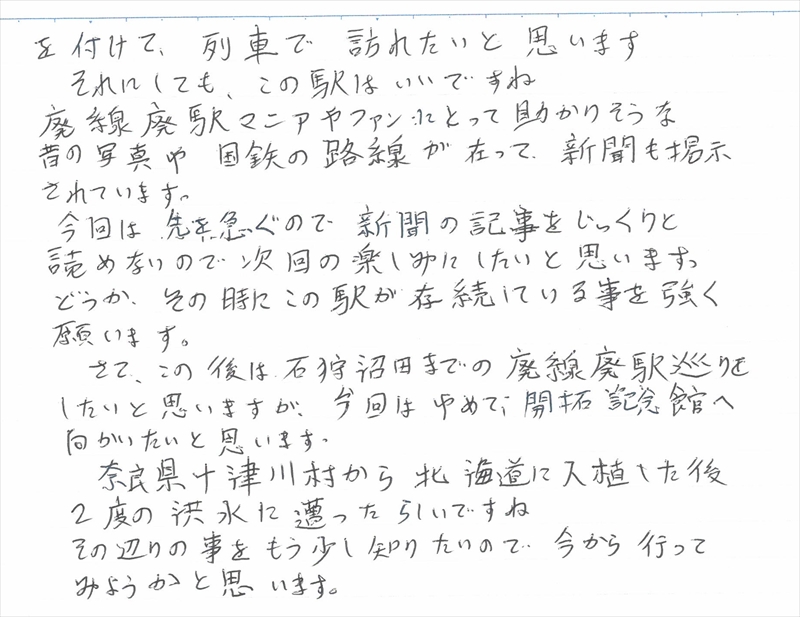 を付けて、列車で訪れたいと思います
それにしても、この駅はいいですね
廃線廃駅マニアやファンにとって助かりそうな
昔の写真や国鉄の路線が在って、新聞も掲示
されています。
今回は先を急ぐので新聞の記事をじっくりと
読めないので次回の楽しみにしたいと思います。
どうか、その時にこの駅が存続している事を強く
願います。
さて、この後は石狩沼田までの廃線廃駅巡りを
したいと思いますが、今回はやめて、開拓記念館へ
向かいたいと思います。
奈良県十津川村から北海道に入植した後
2度の洪水に遭ったらしいですね
その辺りの事をもう少し知りたいので、今から行って
みようかと思います。